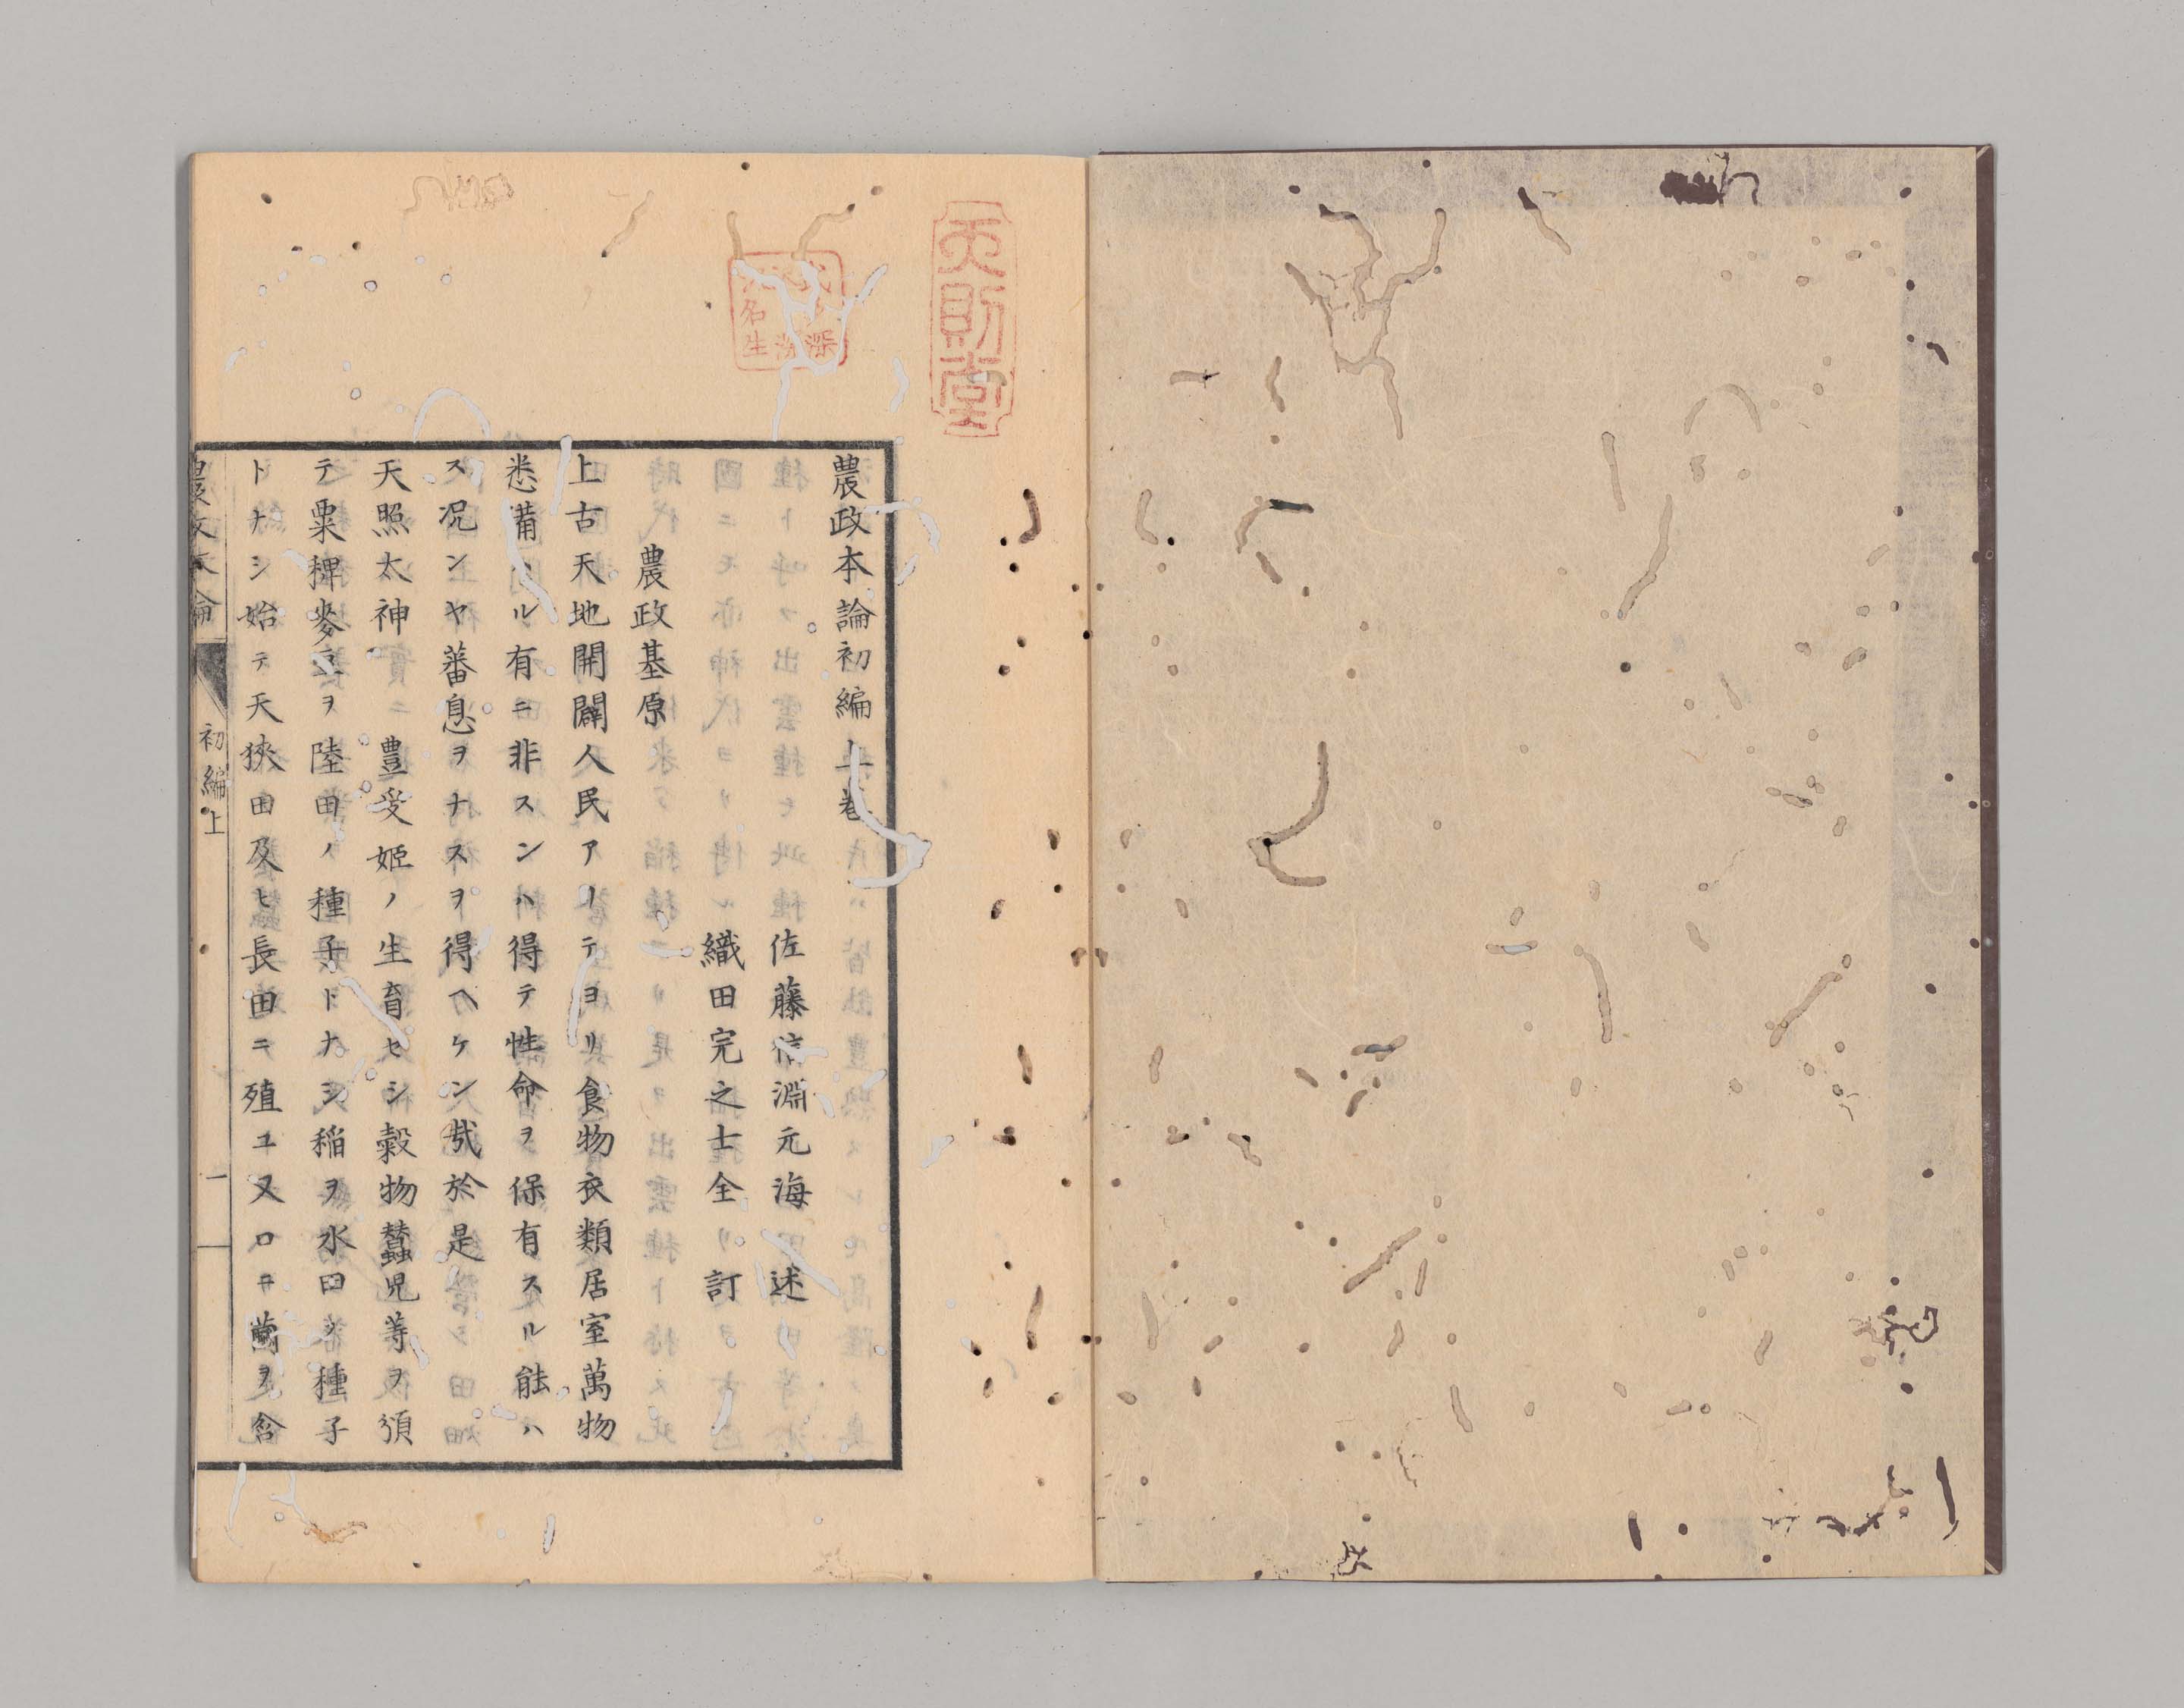 天則堂
農政本論初編上卷
佐藤信淵元海 述
織田完之士全 訂
農政基原
上古天地開闢人民アリテヨリ食物衣類居室萬物
悉備ハル有ニ非スンハ得テ性命ヲ保有スル能ハ
ス况ンヤ蕃息ヲナスヲ得ヘケン哉於是
天照太神 豊受姫ノ生育セシ穀物蠶児等ヲ須
テ粟稗麥豆ヲ陸田ノ種子トナシ稲ヲ水田ノ種子
トナシ始テ天狹田及ヒ長田ニ殖ユ又口ニ繭ヲ含
初編上
一